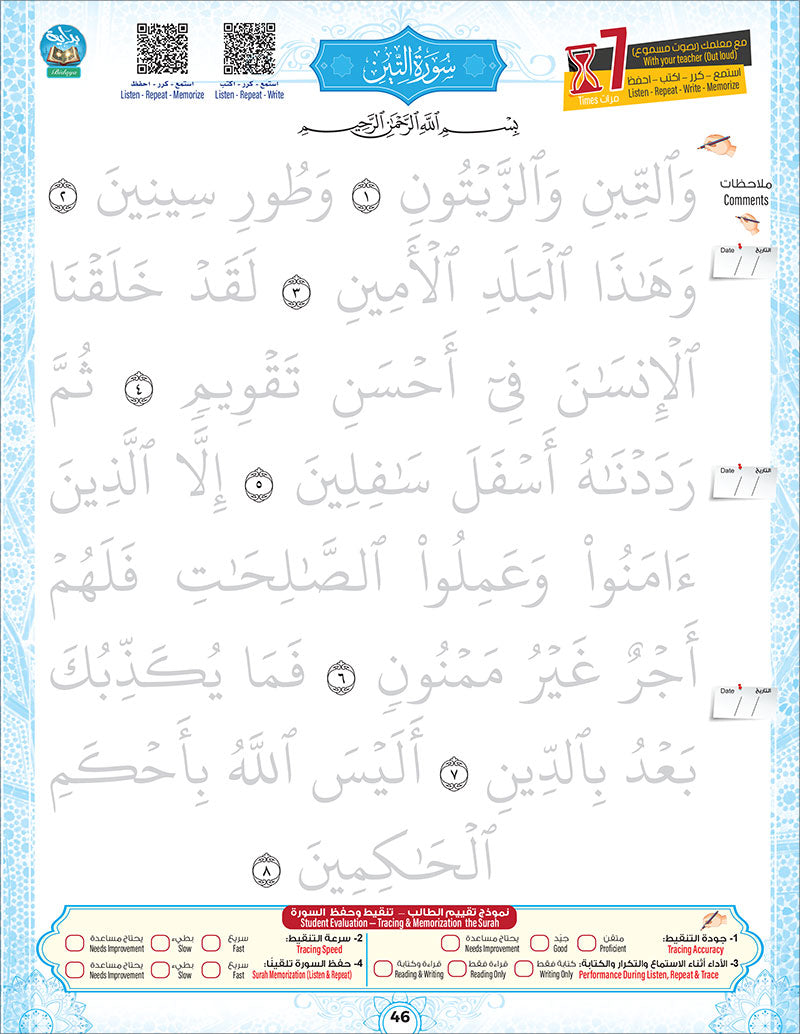 بداية
Bidaya
استمع - كرر - احفظ
Listen - Repeat - Memorize
استمع - كرر - اكتب
Listen - Repeat - Write
سُورَةُ التِّينِ
7 مرات Times
مع معلمك (بصوت مسموع)
With your teacher (Out loud)
استمع - كرر - اكتب - احفظ
Listen - Repeat - Write - Memorize
بِسْمِ اللَّهِ الرَّحْمَٰنِ الرَّحِيمِ
ملاحظات
Comments
وَٱلتِّينِ وَٱلزَّيْتُونِ ١ وَطُورِ سِينِينَ ٢
Date التاريخ
/ /
وَهَٰذَا ٱلْبَلَدِ ٱلْأَمِينِ ٣ لَقَدْ خَلَقْنَا
ٱلْإِنسَٰنَ فِىٓ أَحْسَنِ تَقْوِيمٍ ٤ ثُمَّ
Date التاريخ
/ /
رَدَدْنَٰهُ أَسْفَلَ سَٰفِلِينَ ٥ إِلَّا ٱلَّذِينَ
ءَامَنُوا۟ وَعَمِلُوا۟ ٱلصَّٰلِحَٰتِ فَلَهُمْ
أَجْرٌ غَيْرُ مَمْنُونٍ ٦ فَمَا يُكَذِّبُكَ
Date التاريخ
/ /
بَعْدُ بِٱلدِّينِ ٧ أَلَيْسَ ٱللَّهُ بِأَحْكَمِ
ٱلْحَٰكِمِينَ ٨
نموذج تقييم الطالب – تنقيط وحفظ السورة
Student Evaluation – Tracing & Memorization the Surah
1- جودة التنقيط: متقن جيّد يحتاج مساعدة
Tracing Accuracy Proficient Good Needs Improvement
2- سرعة التنقيط: سريع بطيء يحتاج مساعدة
Tracing Speed Fast Slow Needs Improvement
3- الأداء أثناء الاستماع والتكرار والكتابة: كتابة فقط قراءة فقط قراءة وكتابة
Performance During Listen, Repeat & Trace Writing Only Reading Only Reading & Writing
4- حفظ السورة تلقينًا: سريع بطيء يحتاج مساعدة
Surah Memorization (Listen & Repeat) Fast Slow Needs Improvement
46